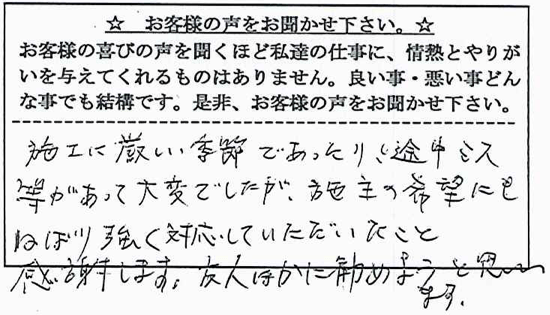 ☆ お客様の声をお聞かせ下さい。☆
お客様の喜びの声を聞くほど私達の仕事に、情熱とやりが
いを与えてくれるものはありません。良い事・悪い事どん
な事でも結構です。是非、お客様の声をお聞かせ下さい。
施工に厳しい季節であったり、途中ミス
等があって大変でしたが、施主の希望にも
ねばり強く対応していただいたこと
感謝します。友人ほかに勧めようと思い
ます。